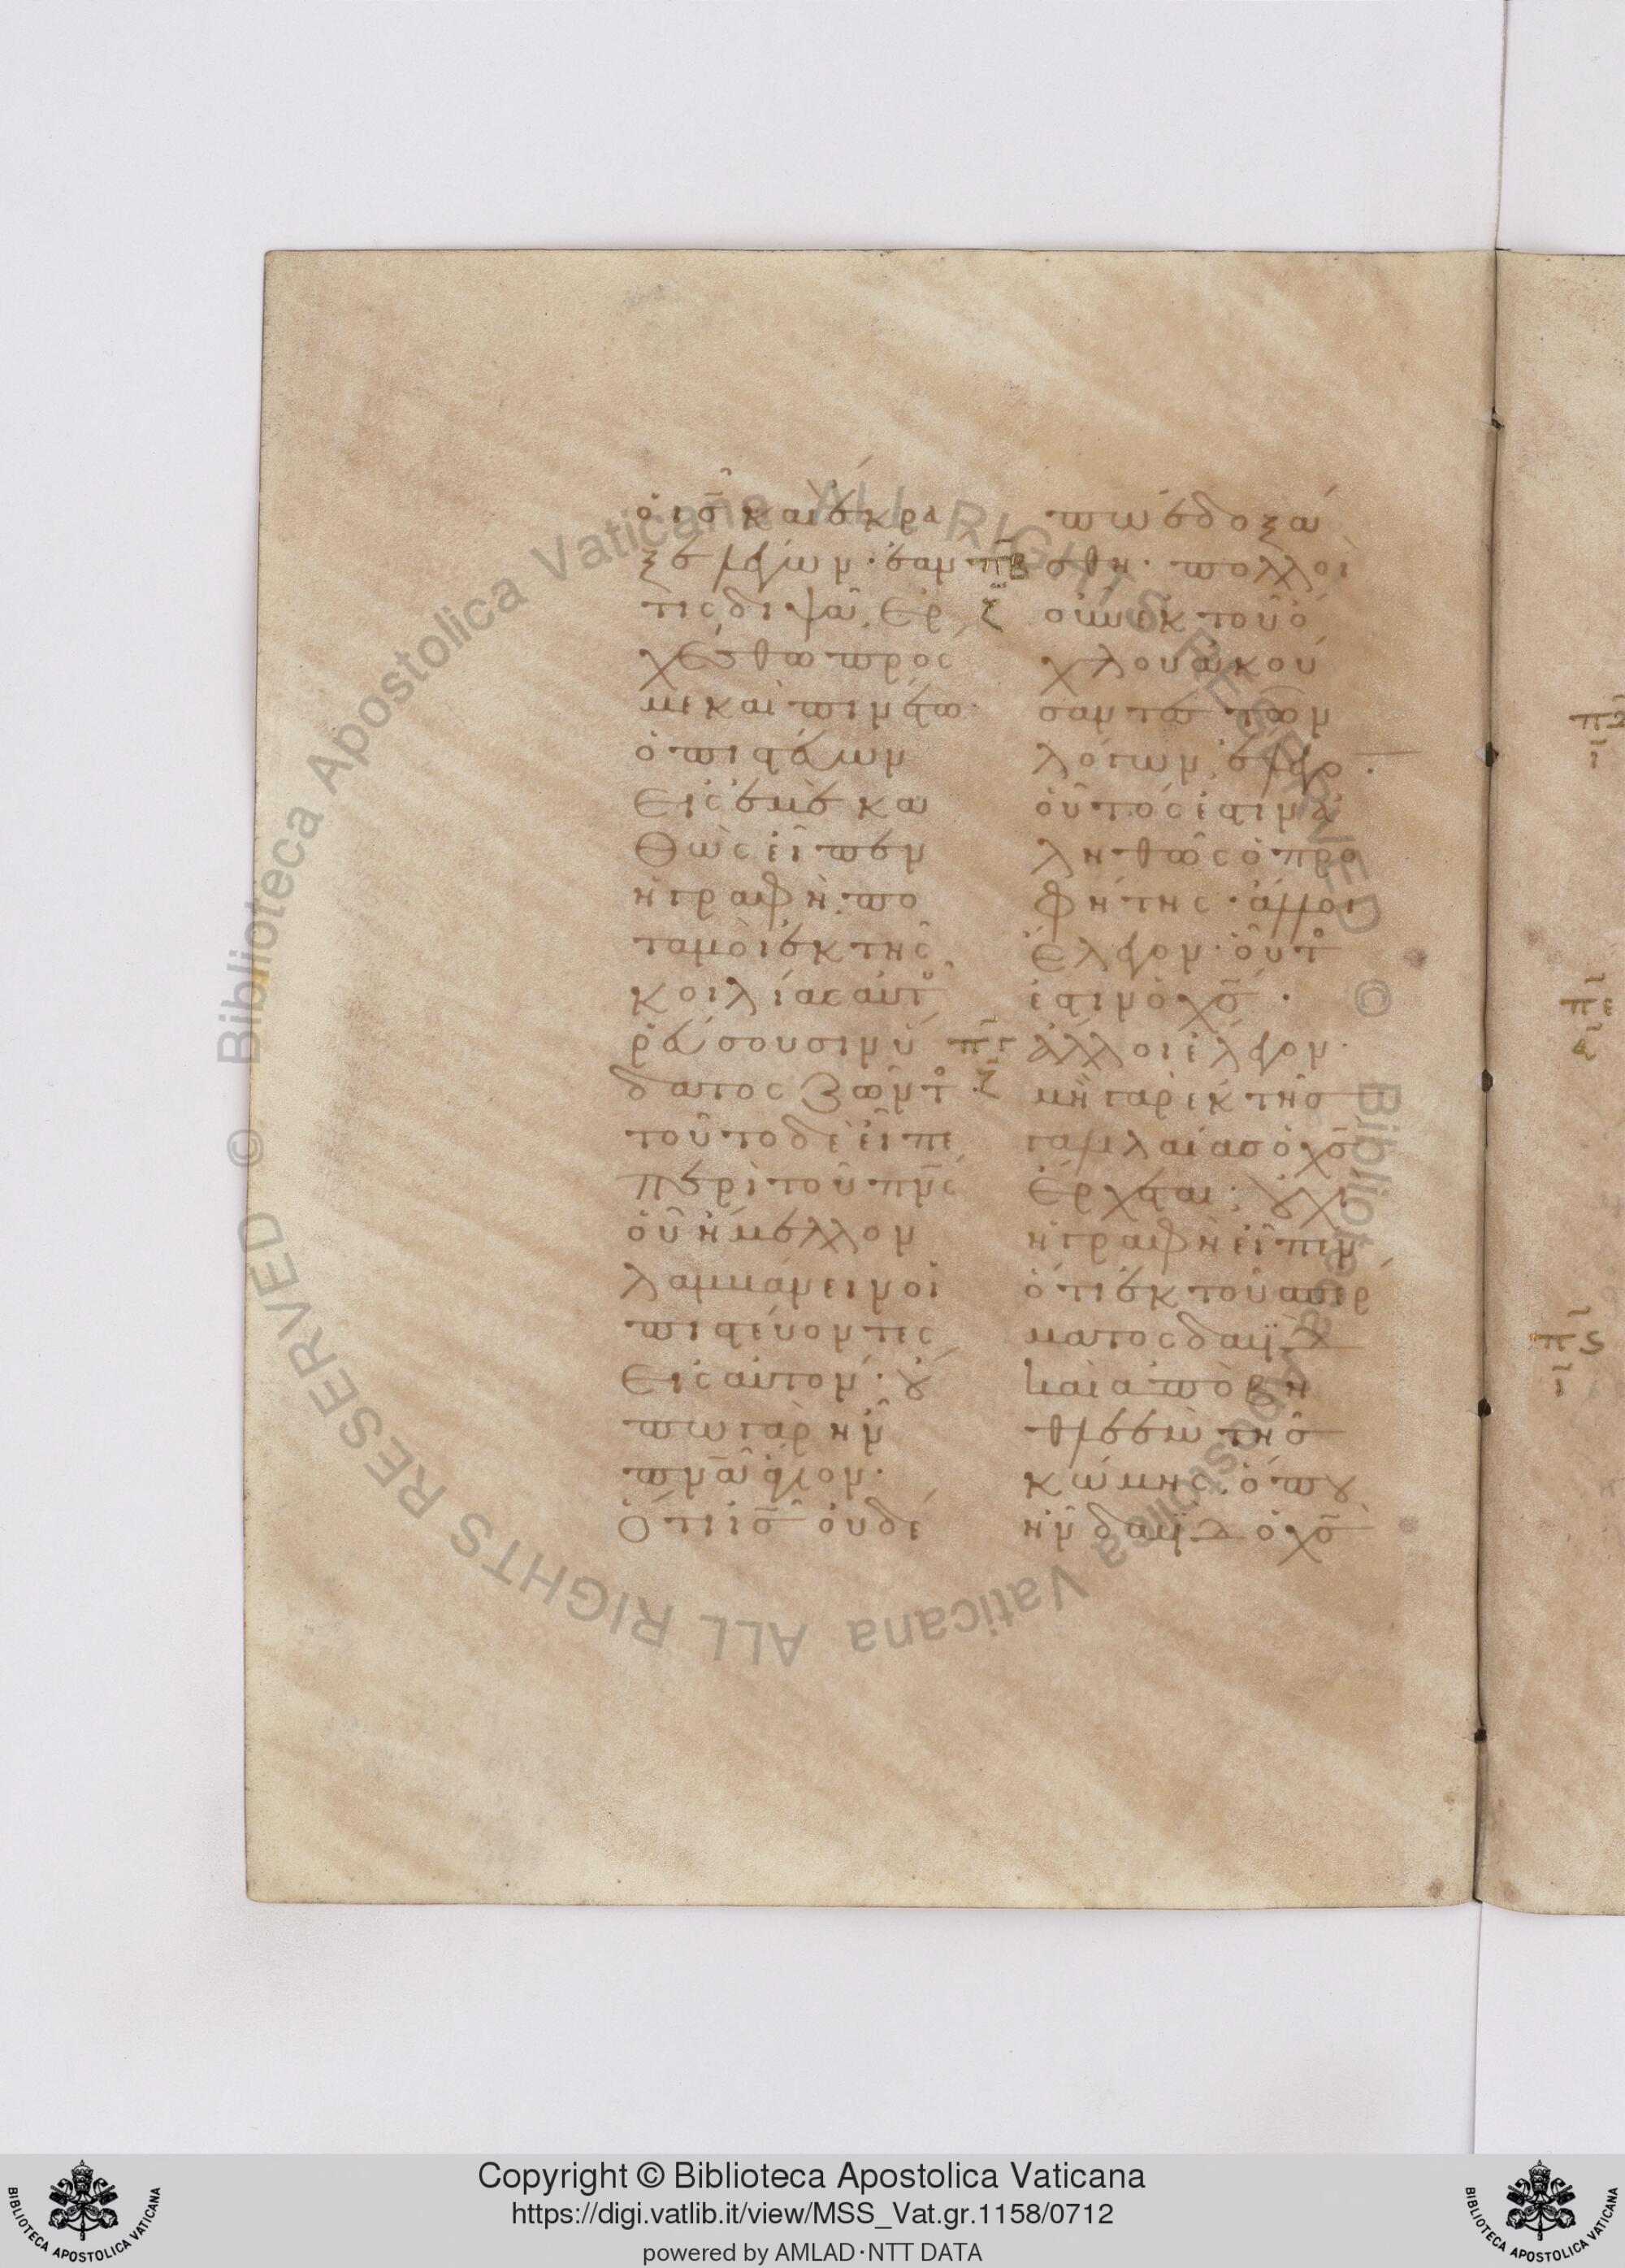 ὁ ις̅ καὶ ἔκρα
ξε λέγων· ἐάν
τις διψᾶ, Ερ
χέσθω πρός
με καὶ πινέτω·
ὁ πιστεύων
Εἰς ἐμὲ κα
Θὼς εἶπεν
ἡ γραφὴ· πο
ταμοὶ ἐκ τῆς
κοιλίας αὐτοῦ
ῥεύσουσιν ὕ
δατος ζῶντος
τοῦτο δὲ εἶπε
περὶ τοῦ πν̅ς
οὗ ἤμελλον
λαμβάνειν οἱ
πιστεύοντες
Εἰς αὐτόν· οὔ
πω γὰρ ἦν
πνα̅ ἅγιον·
Ὅτι ις̅ οὐδέ
πβ
ζ
πγ
ζ
πω ἐδοξά
σθη· πολλοὶ
οὖν ἐκ τοῦ ὄ
χλου ἀκού
σαντες τῶν
λόγων, ἔλεγον·
οὗτός ἐστιν ἀ
ληθῶς ὁ προ
φήτης· ἄλλοι
Ἔλεγον· οὗτος
ἐστιν ὁ χς̅·
ἄλλοι ἔλεγον·
μὴ γὰρ ἐκ τῆς
γαλιλαίας ὁ χς̅
Ἔρχεται; οὐχὶ
ἡ γραφὴ εἶπεν
ὅτι ἐκ τοῦ σπέρ
ματος δαυϊδ
καὶ ἀπὸ βη
θλεὲμ τῆς
κώμης. ὅπου
ἦν δαυϊδ ὁ χς̅
πε
πς
Copyright © Biblioteca Apostolica Vaticana
https://digi.vatlib.it/view/MSS_Vat.gr.1158/0712
powered by AMLAD·NTT DATA
BIBLIOTECA APOSTOLICA VATICANA
BIBLIOTECA APOSTOLICA VATICANA
© Biblioteca Apostolica Vaticana ALL RIGHTS RESERVED
© Biblioteca Apostolica Vaticana ALL RIGHTS RESERVED